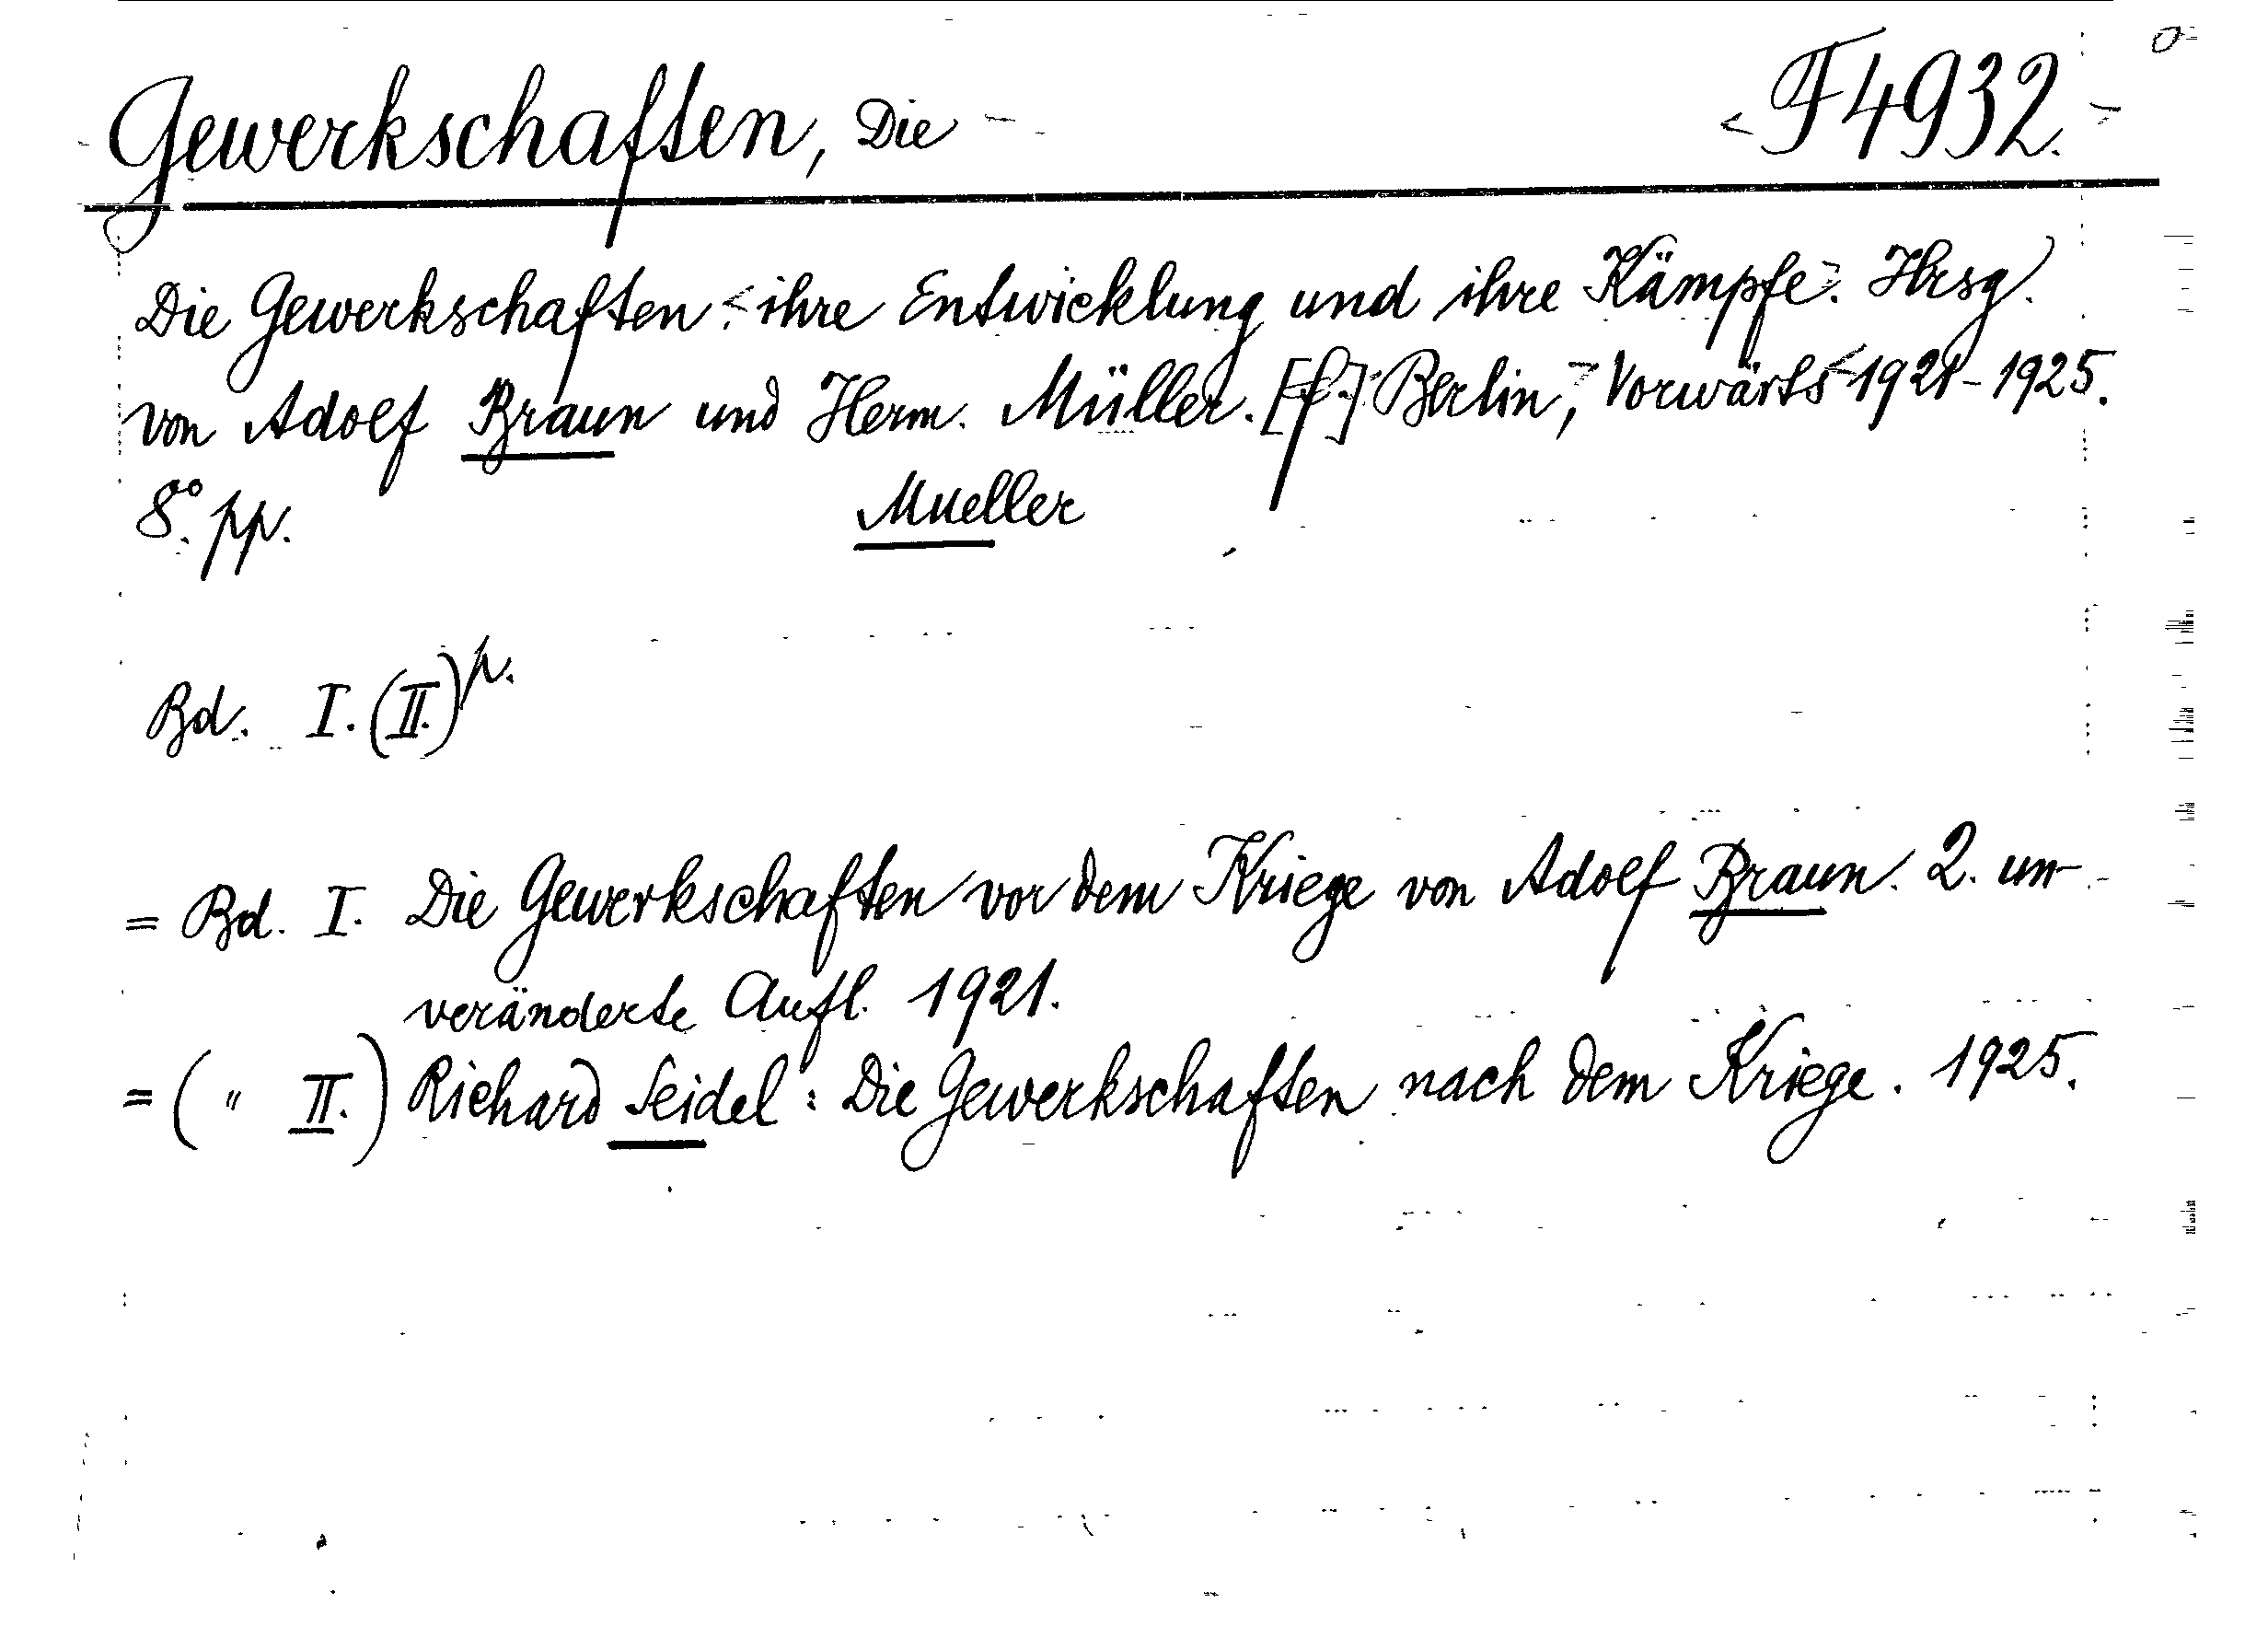 Gewerkschaften, Die - <F 4932.
Die Gewerkschaften <: ihre Entwicklung und ihre Kämpfe>. Hrsg.
von Adolf Braun und Herm. Müller. [f.] Berlin, Vorwärts 1921-1925.
8°. pp. Mueller
Bd. I. (II.) p.
= Bd. I. Die Gewerkschaften vor dem Kriege von Adolf Braun. 2. un-
veränderte Aufl. 1921.
= ( " II.) Richard Seidel: Die Gewerkschaften nach dem Kriege. 1925.